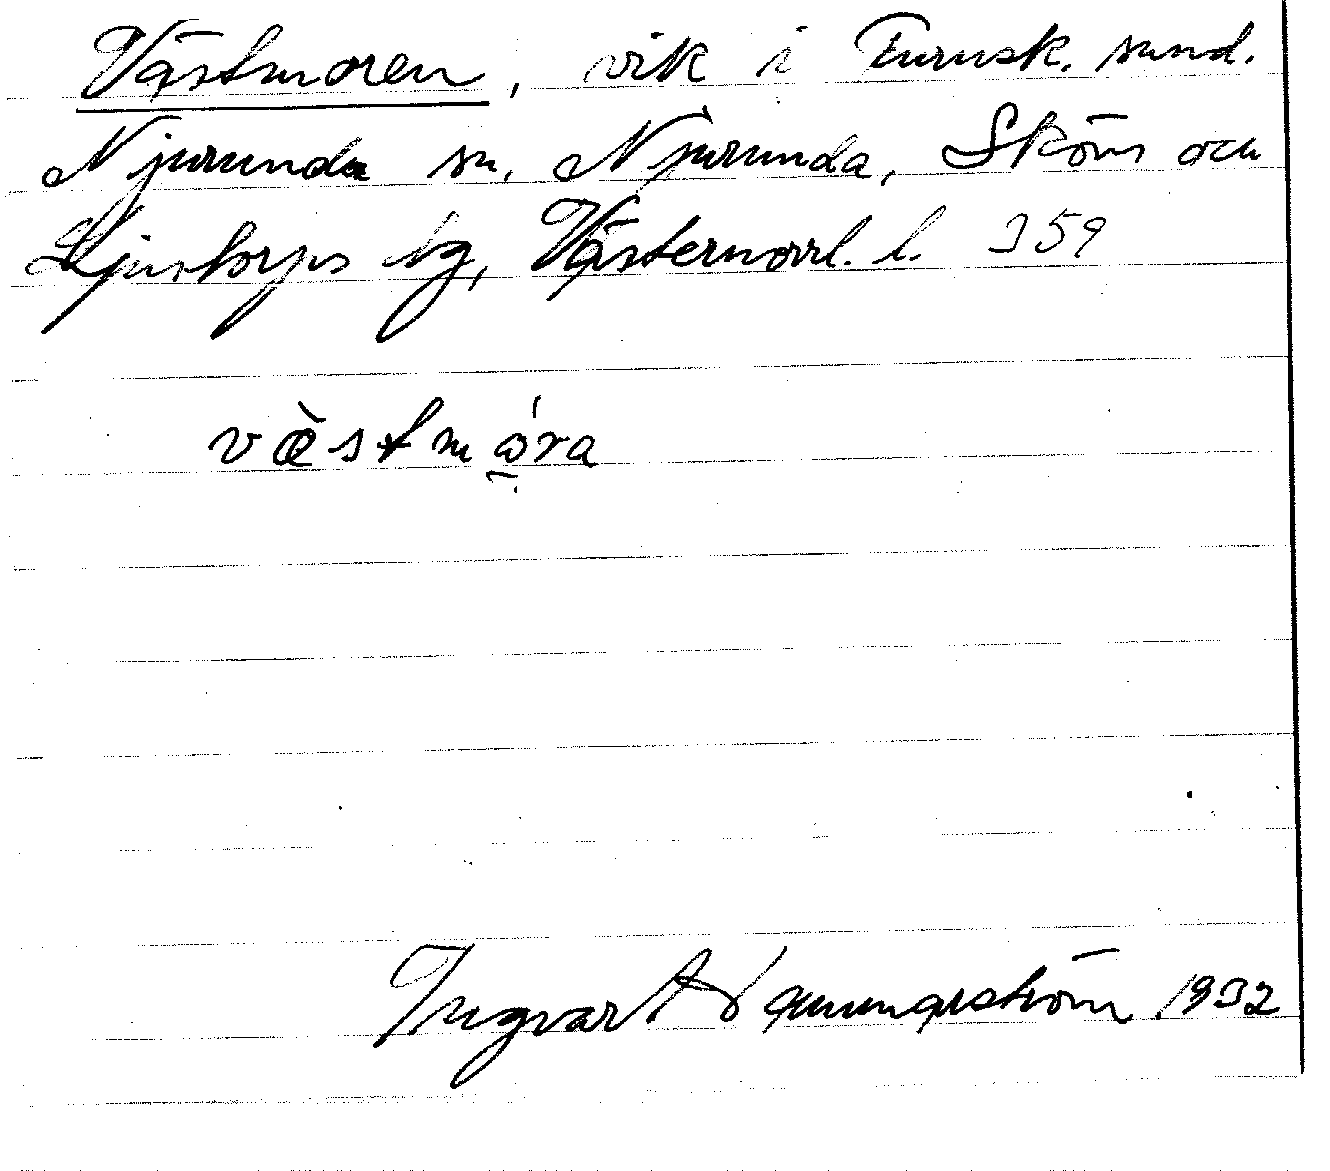 Västmoren, vik i Furusk. sund.
Njurunda sn. Njurunda, Sköns och
Ljustorps tg, Västernorrl. l. 359
væ̀stmώ̣ra
Ingvar Hammarström 1932